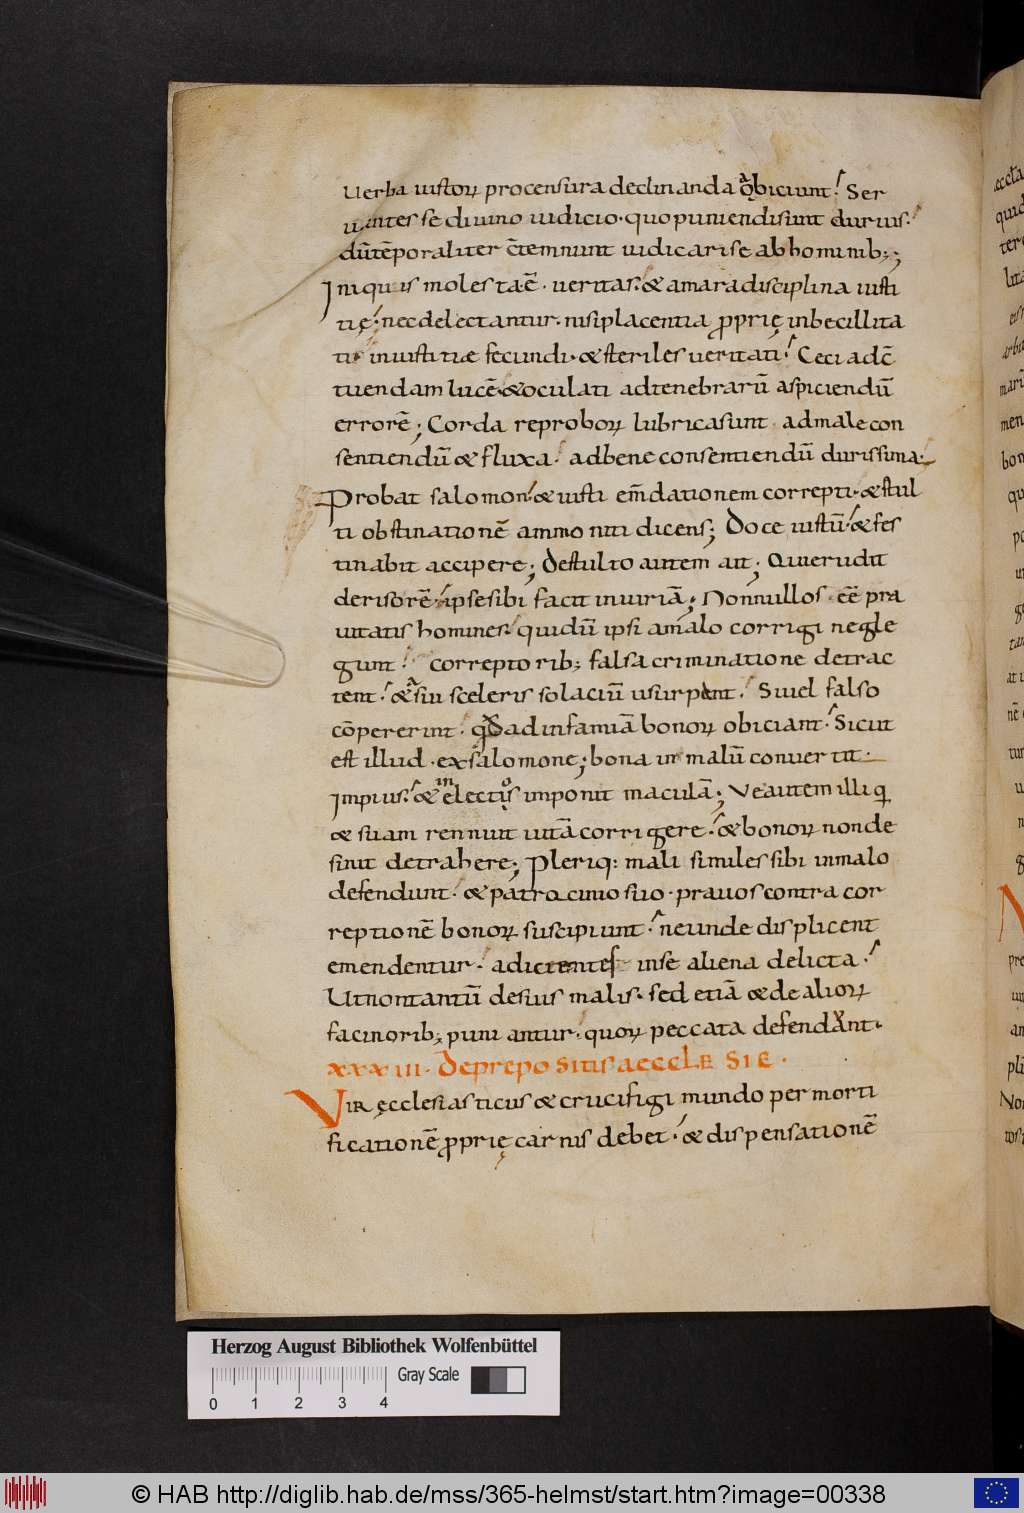 uerba iustoꝝ procensura declinanda qᷓbiciunt. Ser
uantes se diuino iudicio. quo puniendisunt durius.
dūtēporaliter cōtemnunt iudicarise abhominib;;
Iniquis molesta ē. ueritas. & amaradisciplina iusti
tię. necdelectantur. nisiplacentia ꝓprię inbecillita
tis iniustitiæ fecundi. & steriles ueritati. Ceci adcō
tuendam lucē. &oculati adtenebrarū aspiciendū
errorē; Corda reproboꝝ lubricasunt admalecon
sentiendū & fluxa. adbene consentiendū durissima.
Probat salomon. & iusti em̄dationem correpti. & stul
ti obstinationē ammoniti dicens; Doce iustū. & fes
tinabit accipere; Destulto autem ait; Qui erudit
derisorē. ipsesibi facit iniuriā; Nonnullos . eē pra
uitatis homines. quidū ipsi amalo corrigi negle
gunt. correptorib; falsa criminatione detrac
tent. & ᷓsui sceleris solaciū usurpent. Siuel falso
cōpererint. qđ ad infamiā bonoꝝ obiciant. Sicut
est illud . exsalomone; bona in malū conuertit.
Impius. & in electis imponit maculā; Veautem illi q
& suam rennuit uitā corrigere. & bonoꝝ nonde
sinit detrahere; Pleriq: mali similes sibi inmalo
defendunt. & patrocinio suo. prauos contra cor
reptionē bonoꝝ suscipiunt. neunde displicent
emendentur. adicientes inse aliena delicta.
Utnontantū desuis malis. sed etiā & dealioꝝ
facinorib; puniantur. quoꝝ peccata defendant.
xxxiii. De prepositis aecclesie.
Vir ęcclesiasticus & crucifigi mundo per morti
ficationē ꝓprię carnis debet. & dispensationē
Herzog August Bibliothek Wolfenbüttel
Gray Scale
0 1 2 3 4
© HAB http://diglib.hab.de/mss/365-helmst/start.htm?image=00338